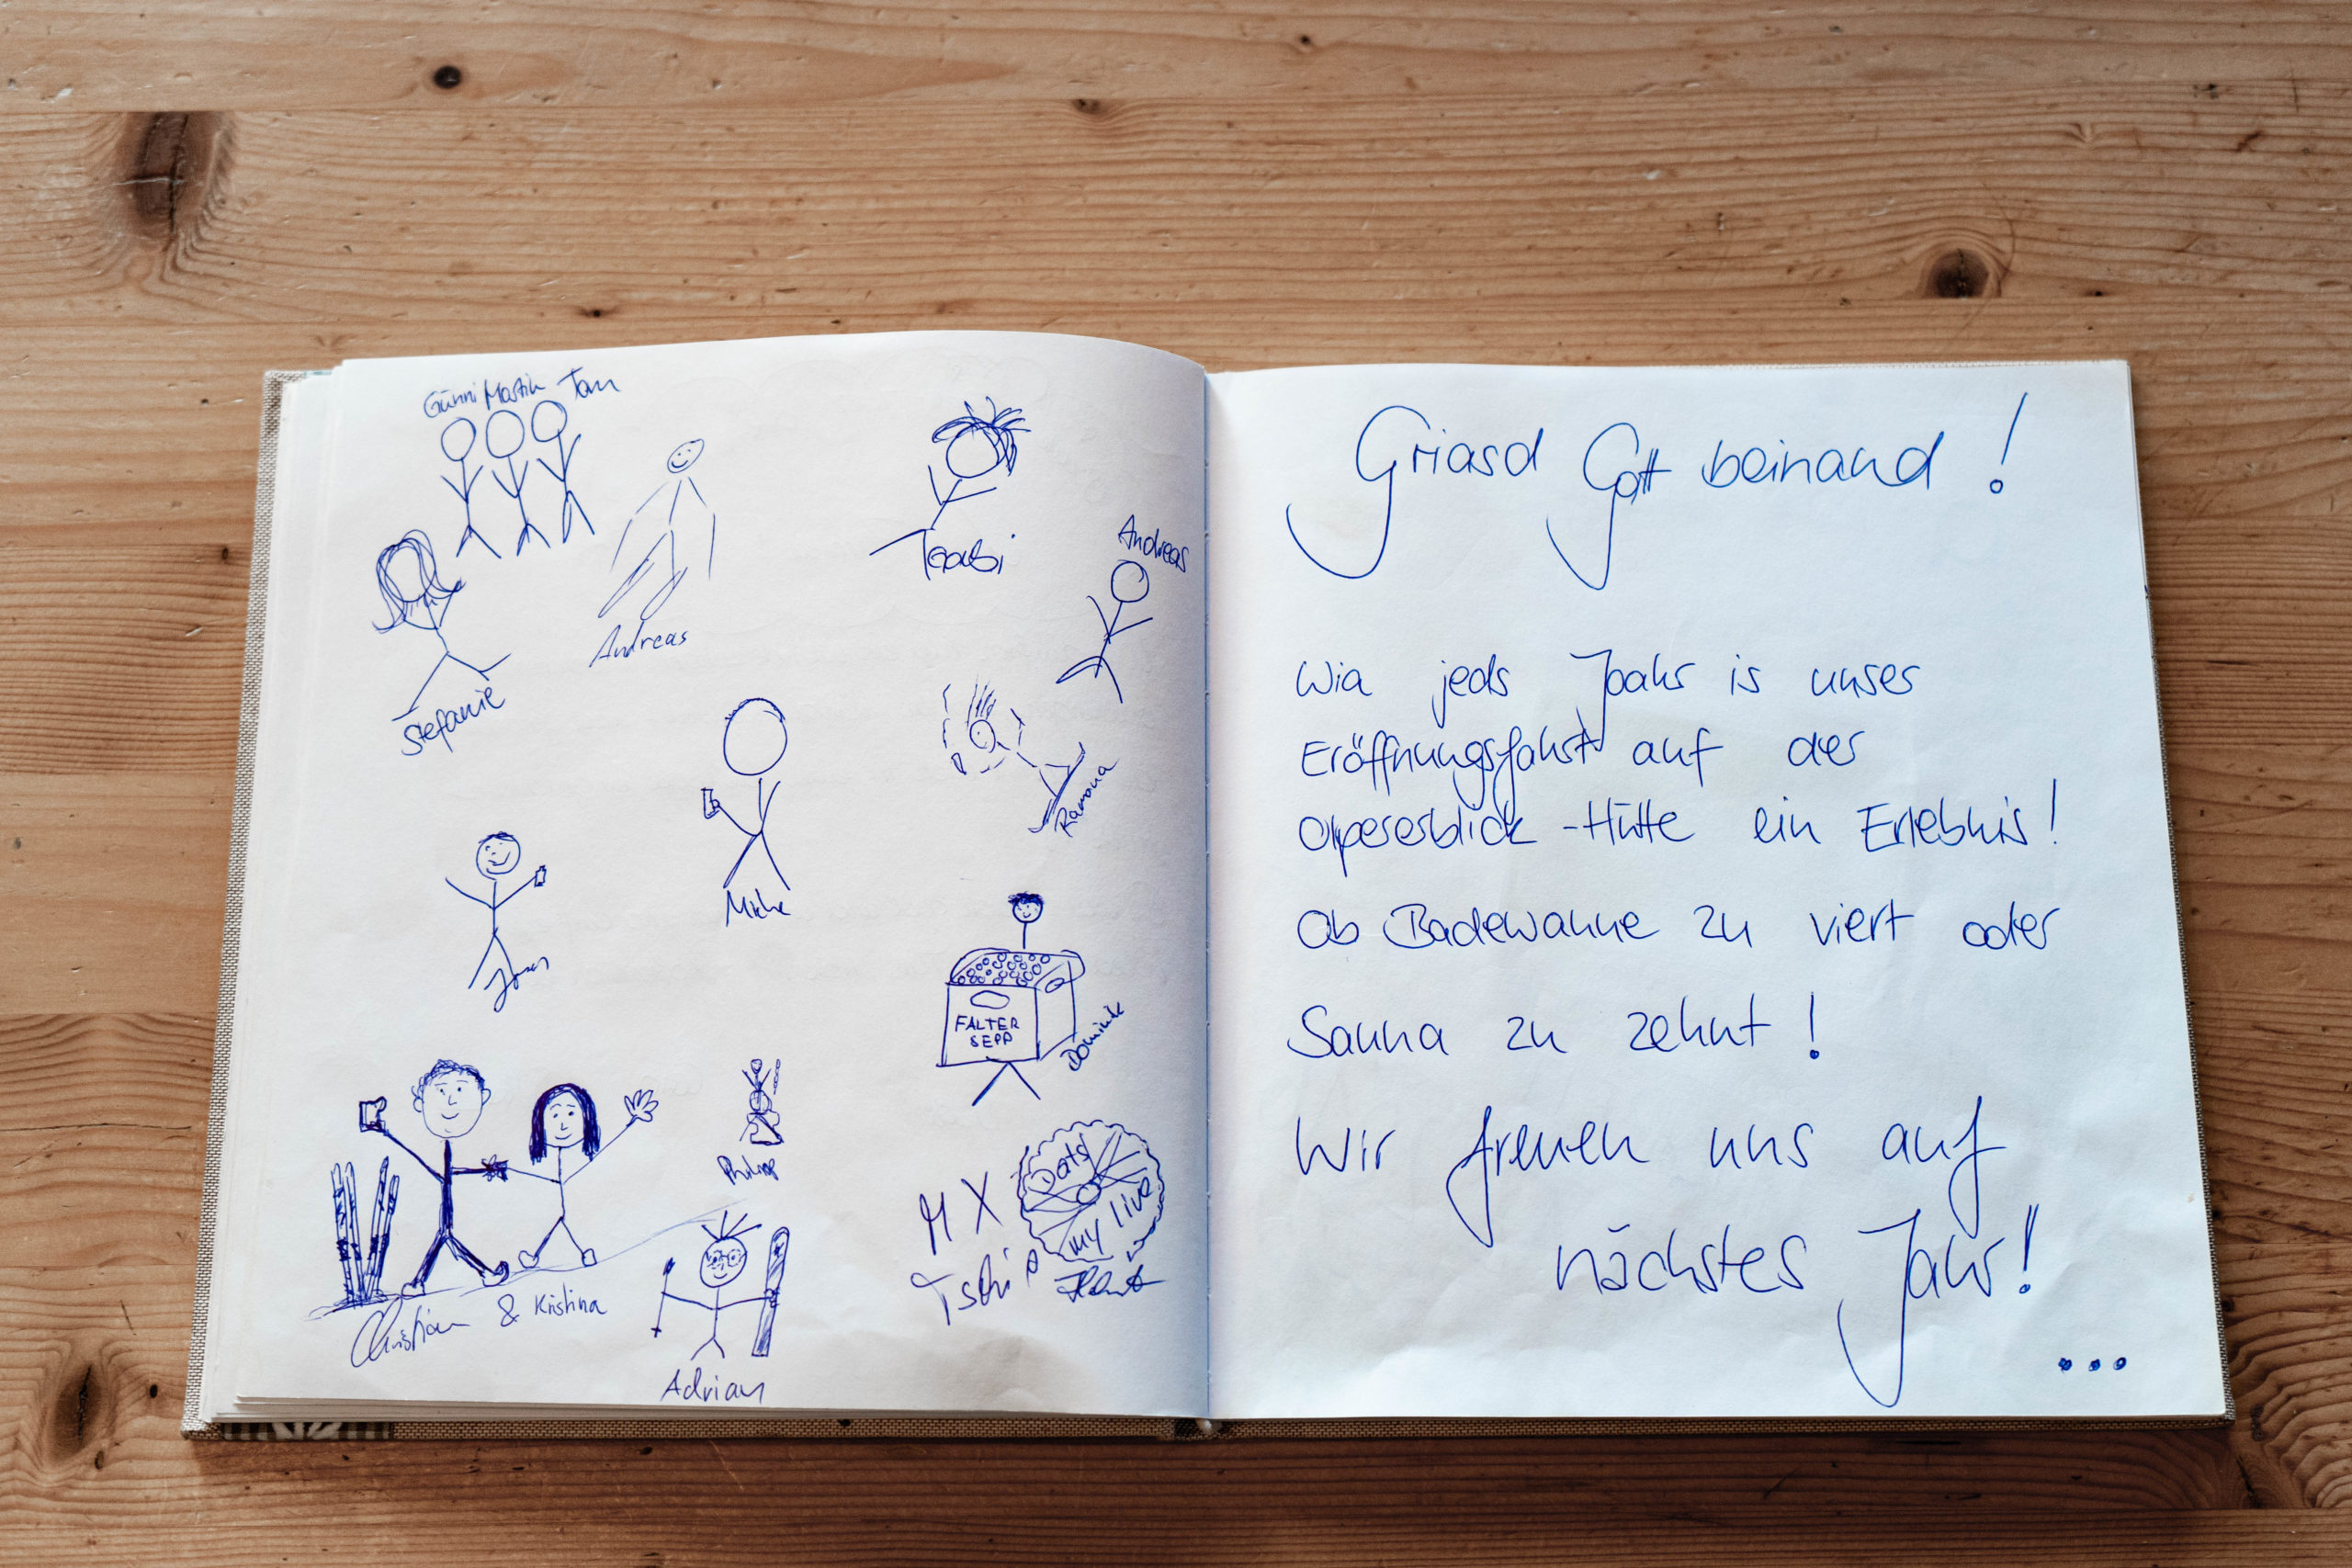 Günni Martin Tom
Andreas
Stefanie
Andreas
Ramona
FALTER
SEPP
Dominik
Philipp
Christian & Kristina
Adrian
MX
Dats
my live
Griasd Gott beinand!
Wia jeds Joahr is unser
Eröffnungsfahrt auf der
Hütte ein Erlebnis!
Ob Badewanne zu viert oder
Sauna zu zehnt!
Wir freuen uns auf
nächstes Jahr!
...